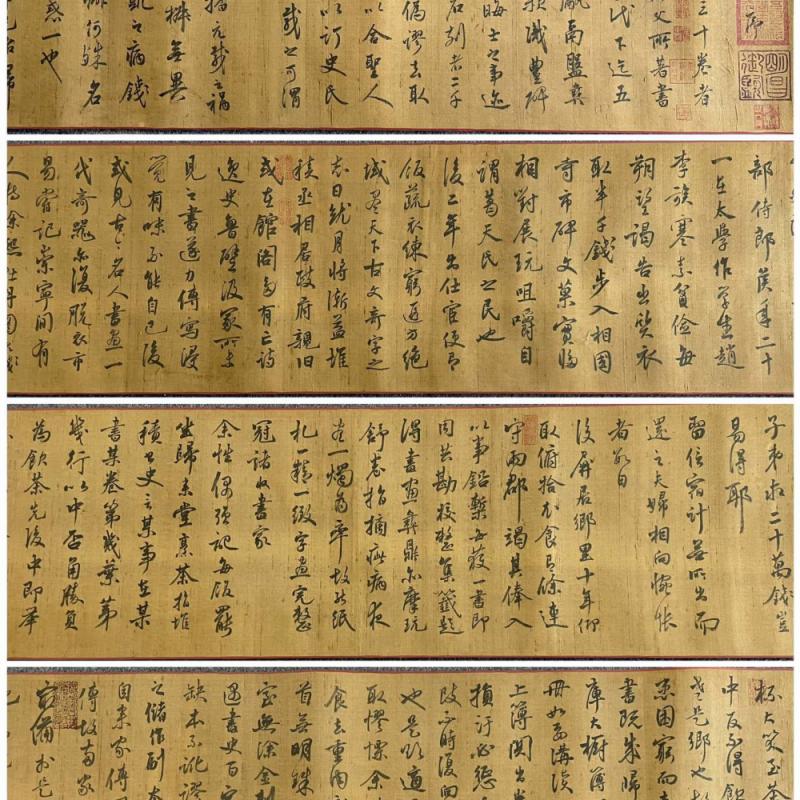 序
三十卷者
父所著書
代下迄五
鬲盤彝
識豐碑
晦士之事迹
石刻者二千
偽謬去取
以合聖人
以訂史氏
載之可謂
元載之禍
凱之病錢
椒無異
何殊名
惑一也
部侍郎侯年二十
一在太學作學生趙
李族寒素貧儉每
朔望謁告出質衣
取半千錢步入相國
寺市碑文菓實歸
相對展玩咀嚼自
謂葛天氏之民也
後二年出仕宦便有
飯蔬衣練窮遐方絕
域盡天下古文奇字之
志日就月將漸益堆
積丞相居政府親舊
或在館閣多有亡詩
逸史魯壁汲冢所未
見之書遂力傳寫浸
覺有味不能自已後
或見古今名人書畫一
代奇器亦復脫衣市
易嘗記崇寧間有
人持徐熙牡丹圖求錢
子弟求二十萬錢豈
易得耶
留信宿計無所出而
還之夫婦相向惋悵
者數日
後屏居鄉里十年仰
取俯拾衣食有餘連
守兩郡竭其俸入
以事鉛槧每獲一書即
同共勘校整集籤題
得書畫彝鼎亦摩玩
舒卷指摘疵病夜
盡一燭為率故能紙
札精緻字畫完整
冠諸收書家
余性偶強記每飯罷
坐歸來堂烹茶指堆
積書史言某事在某
書某卷第幾葉第
幾行以中否角勝負
為飲茶先後中即舉
杯大笑至茶
中反不得飲
老是鄉也故
患困窮而志
書既成歸
庫大櫥簿
冊如要講讀
上簿關出卷
損污必懲
改不時復向
也是欲求適
取憀慄余
食去重肉
首無明珠
室無塗金
遇書史百家
缺本不訛謬
之儲作副本
自來家傳周
傳故兩家
最備於是